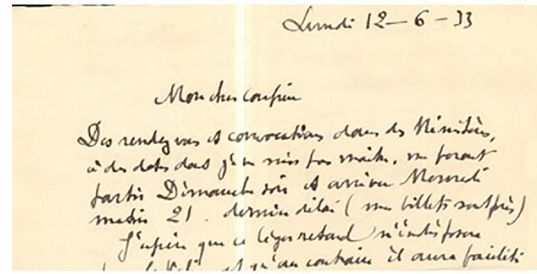 Lundi 12 - 6 - 33
Mon cher confrère
Des rendez vous et convocations dans des Ministères,
à des dates dont je ne suis pas maître, me feront
partir Dimanche soir et arriver Mercredi
matin 21. dernier délai (mes billets sont pris)
J'espère que ce léger retard n'indisposera
qu'au contraire il aura facilité